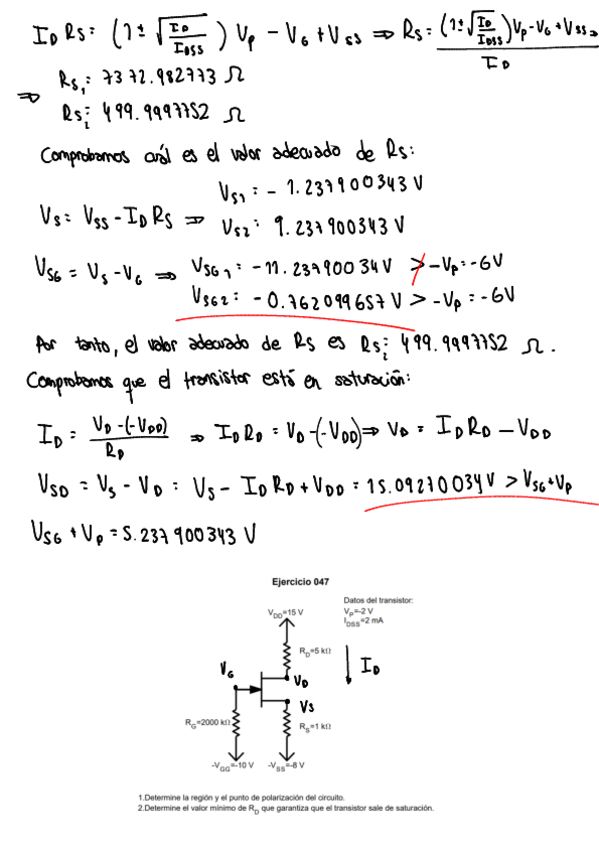 I_D R_S = (1 ± √(I_D/I_DSS)) V_P − V_G + V_SS ⇒ R_S = ((1 ± √(I_D/I_DSS)) V_P − V_G + V_SS)/I_D ⇒
⇒ R_S1 : 7372.982773 Ω
R_S2 : 499.9997752 Ω
Comprobamos cuál es el valor adecuado de R_S:
V_S = V_SS − I_D R_S ⇒ V_S1 : −1.237900343 V
V_S2 : 9.237900343 V
V_SG = V_S − V_G ⇒ V_SG1 : −11.23790034 V ≯ −V_P = −6V
V_SG2 : −0.762099657 V > −V_P : −6V
Por tanto, el valor adecuado de R_S es R_S2 : 499.9997752 Ω.
Comprobamos que el transistor está en saturación:
I_D = (V_D − (−V_DD))/R_D ⇒ I_D R_D = V_D − (−V_DD) ⇒ V_D = I_D R_D − V_DD
V_SD = V_S − V_D = V_S − I_D R_D + V_DD = 15.09210034 V > V_SG + V_P
V_SG + V_P = 5.237900343 V
Ejercicio 047
Datos del transistor:
V_P=-2 V
I_DSS=2 mA
V_DD=15 V
R_D=5 kΩ
I_D
V_G
V_D
V_S
R_G=2000 kΩ
R_S=1 kΩ
-V_GG=-10 V
-V_SS=-8 V
1.Determine la región y el punto de polarización del circuito.
2.Determine el valor mínimo de R_D que garantiza que el transistor sale de saturación.